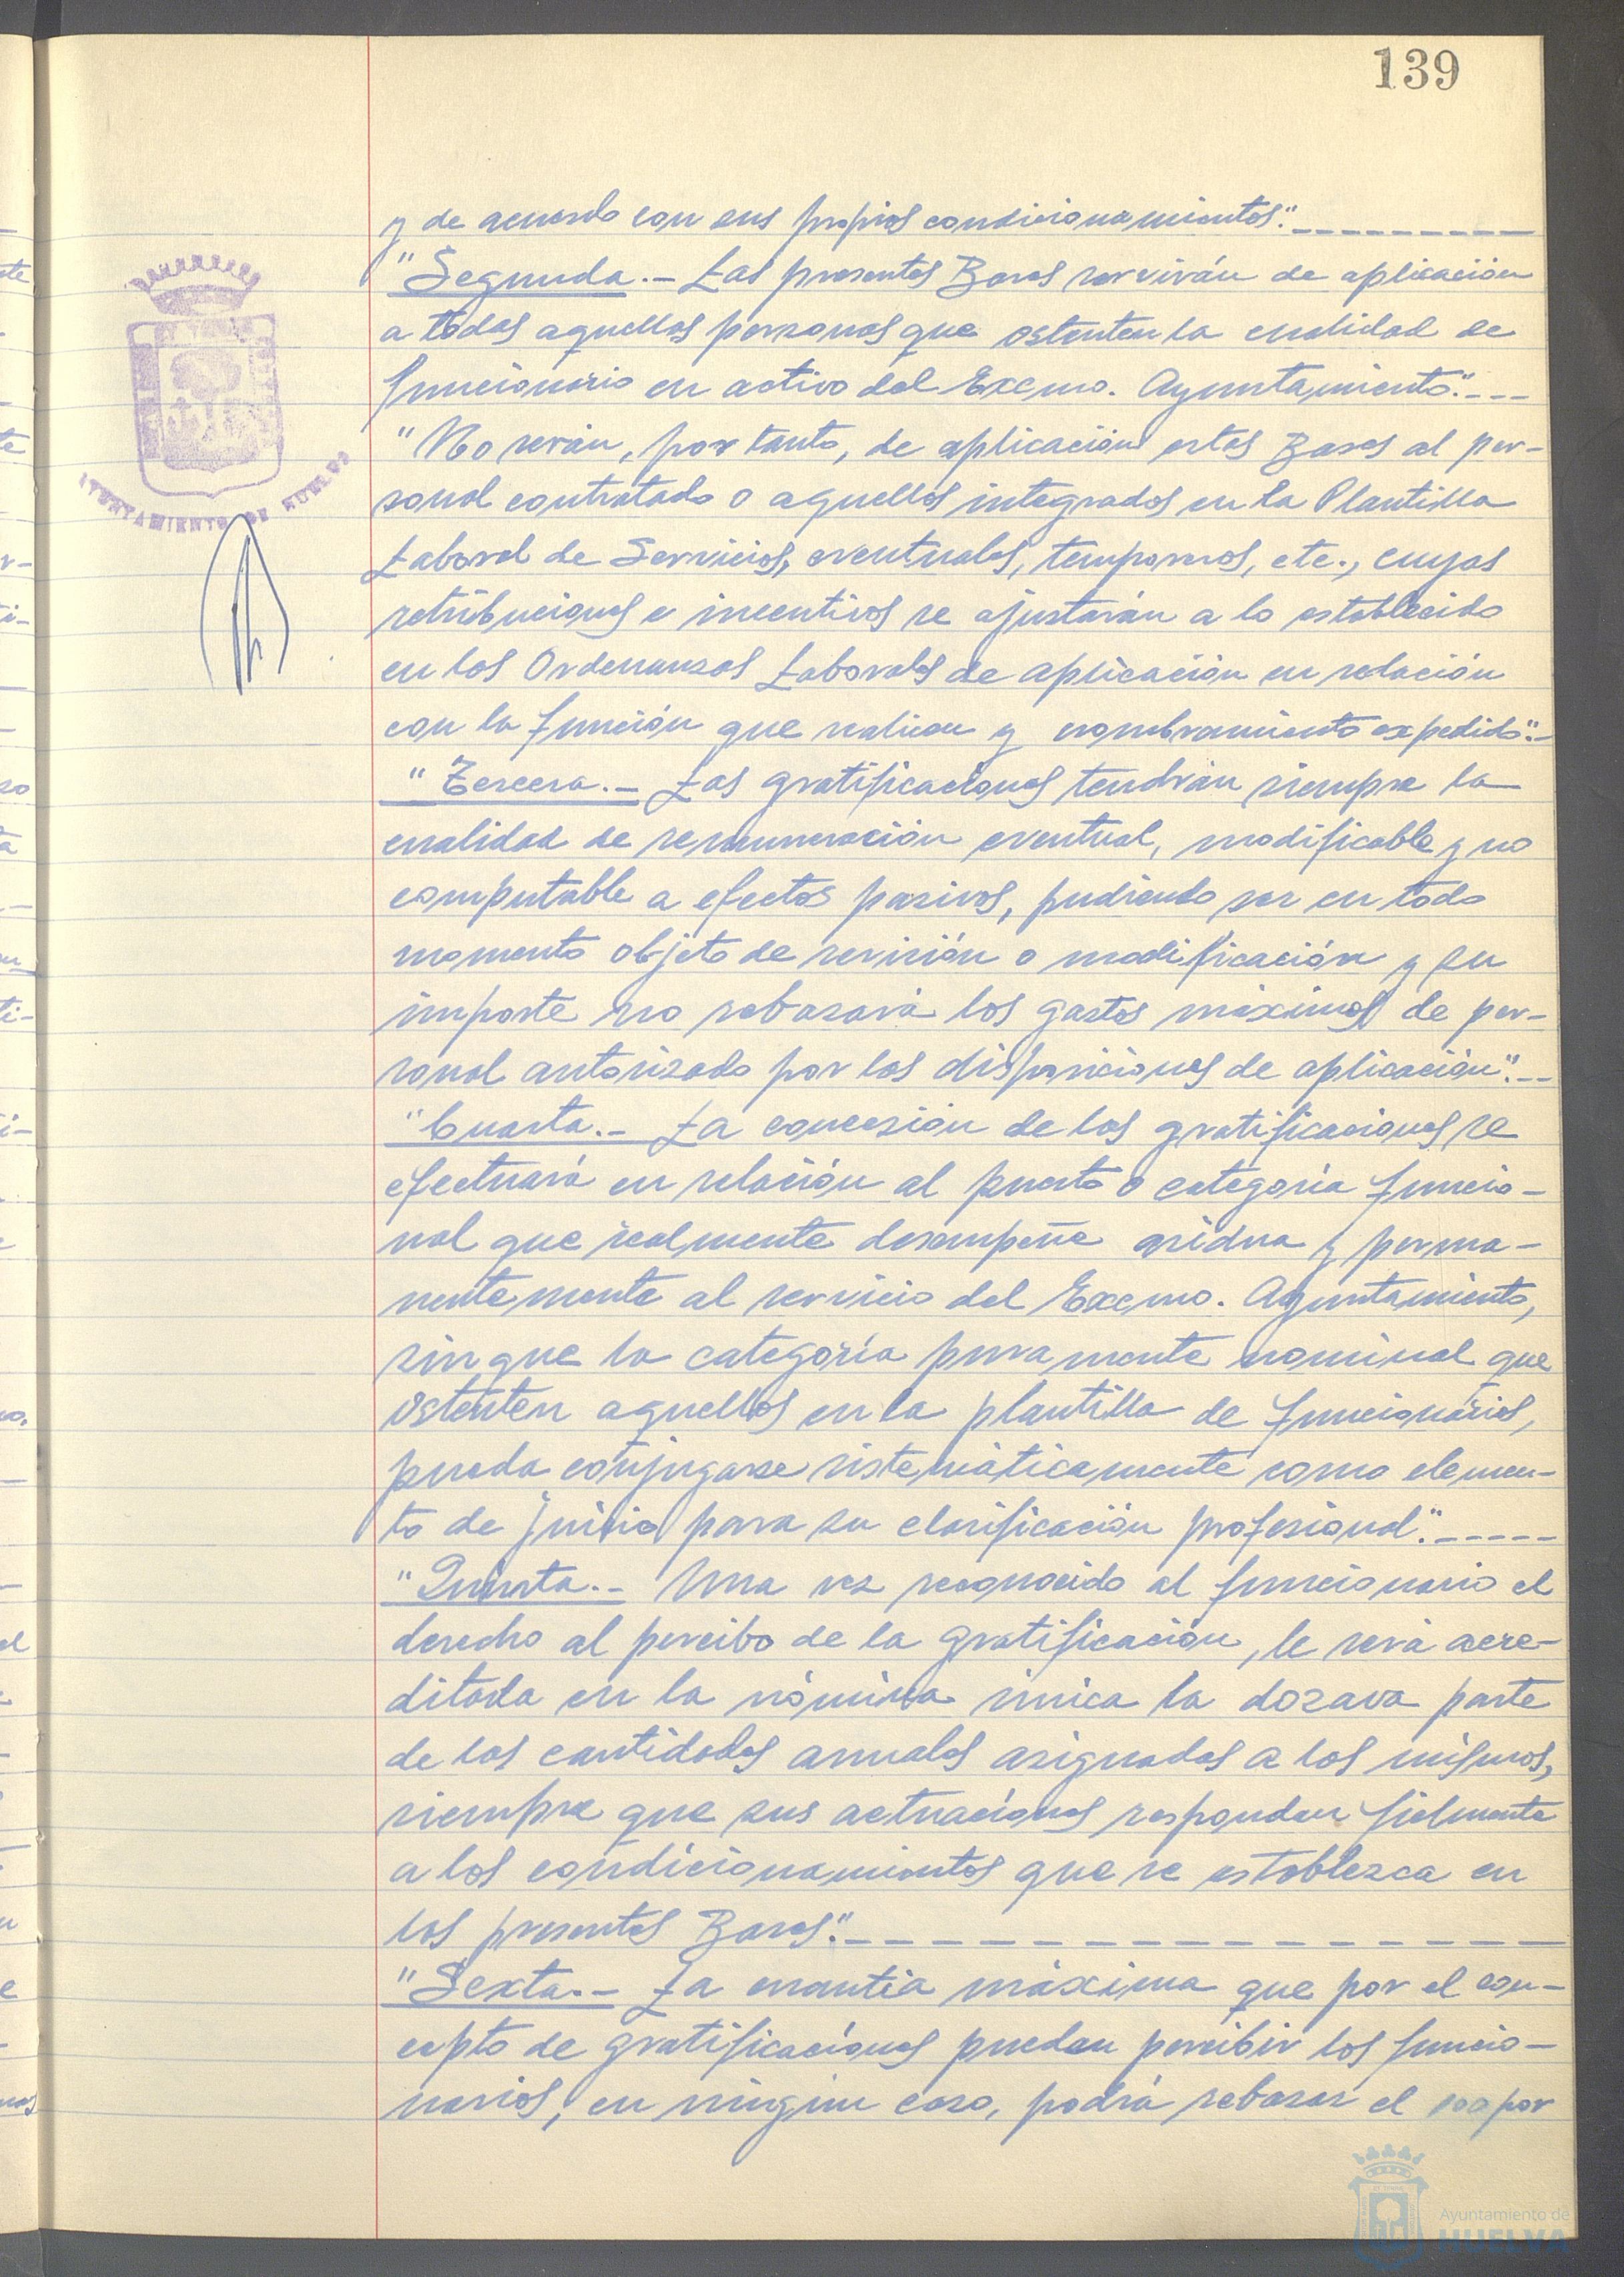 139
y de acuerdo con sus propios condicionamientos".
"Segunda.- Las presentes Bases servirán de aplicación
a todas aquellas personas que ostenten la cualidad de
funcionario en activo del Excmo. Ayuntamiento".
"No serán, por tanto, de aplicación estas Bases al per-
sonal contratado o aquellos integrados en la Plantilla
Laboral de Servicios, eventuales, temporeros, etc., cuyas
retribuciones e incentivos se ajustarán a lo establecido
en las Ordenanzas Laborales de aplicación en relación
con la función que realicen y nombramiento expedido".-
"Tercera.- Las gratificaciones tendrán siempre la
cualidad de remuneración eventual, modificable y no
computable a efectos pasivos, pudiendo ser en todo
momento objeto de revisión o modificación y su
importe no rebasará los gastos máximos de per-
sonal autorizado por las disposiciones de aplicación".-
"Cuarta.- La concesión de las gratificaciones se
efectuará en relación al puesto o categoría funcio-
nal que realmente desempeñe asidua y perma-
nentemente al servicio del Excmo. Ayuntamiento,
sin que la categoría puramente nominal que
ostenten aquellos en la plantilla de funcionarios,
pueda conjugarse sistemáticamente como elemen-
to de juicio para su clasificación profesional".
"Quinta.- Una vez reconocido al funcionario el
derecho al percibo de la gratificación, le será acre-
ditada en la nómina única la dozava parte
de las cantidades anuales asignadas a los mismos,
siempre que sus actuaciones respondan fielmente
a los condicionamientos que se establezca en
las presentes Bases".
"Sexta.- La cuantía máxima que por el con-
cepto de gratificaciones puedan percibir los funcio-
narios, en ningún caso, podrá rebasar el 100 por
AYUNTAMIENTO DE HUELVA
Ayuntamiento de
HUELVA